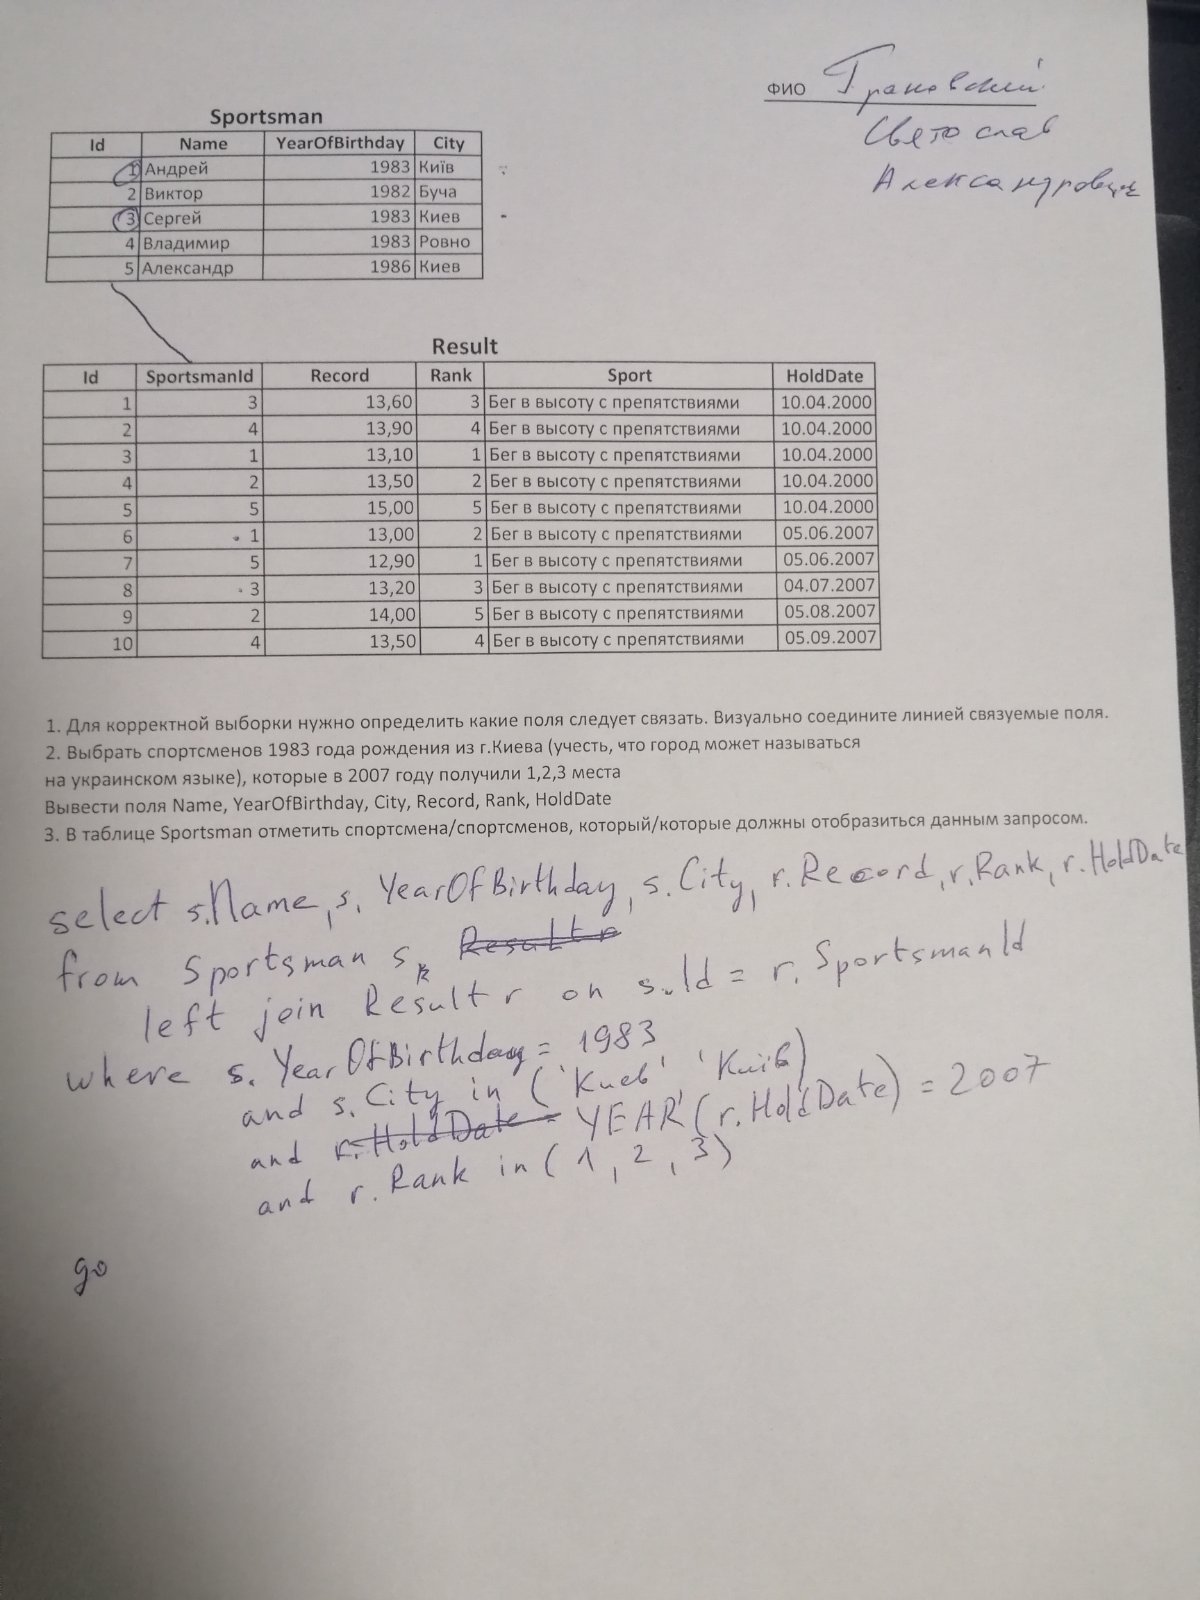 ФИО Грановский
Святослав
Александрович
Sportsman
Id Name YearOfBirthday City
1 Андрей 1983 Київ
2 Виктор 1982 Буча
3 Сергей 1983 Киев
4 Владимир 1983 Ровно
5 Александр 1986 Киев
Result
Id SportsmanId Record Rank Sport HoldDate
1 3 13,60 3 Бег в высоту с препятствиями 10.04.2000
2 4 13,90 4 Бег в высоту с препятствиями 10.04.2000
3 1 13,10 1 Бег в высоту с препятствиями 10.04.2000
4 2 13,50 2 Бег в высоту с препятствиями 10.04.2000
5 5 15,00 5 Бег в высоту с препятствиями 10.04.2000
6 1 13,00 2 Бег в высоту с препятствиями 05.06.2007
7 5 12,90 1 Бег в высоту с препятствиями 05.06.2007
8 3 13,20 3 Бег в высоту с препятствиями 04.07.2007
9 2 14,00 5 Бег в высоту с препятствиями 05.08.2007
10 4 13,50 4 Бег в высоту с препятствиями 05.09.2007
1. Для корректной выборки нужно определить какие поля следует связать. Визуально соедините линией связуемые поля.
2. Выбрать спортсменов 1983 года рождения из г.Киева (учесть, что город может называться
на украинском языке), которые в 2007 году получили 1,2,3 места
Вывести поля Name, YearOfBirthday, City, Record, Rank, HoldDate
3. В таблице Sportsman отметить спортсмена/спортсменов, который/которые должны отобразиться данным запросом.
select s.Name, s. YearOfBirthday, s. City, r. Record, r. Rank, r. HoldDate
from Sportsman s Result r
left join Result r on s.Id = r. SportsmanId
where s. YearOfBirthday = 1983
and s. City in ('Киев', 'Київ')
and r. HoldDate = YEAR (r. HoldDate) = 2007
and r. Rank in (1, 2, 3)
go